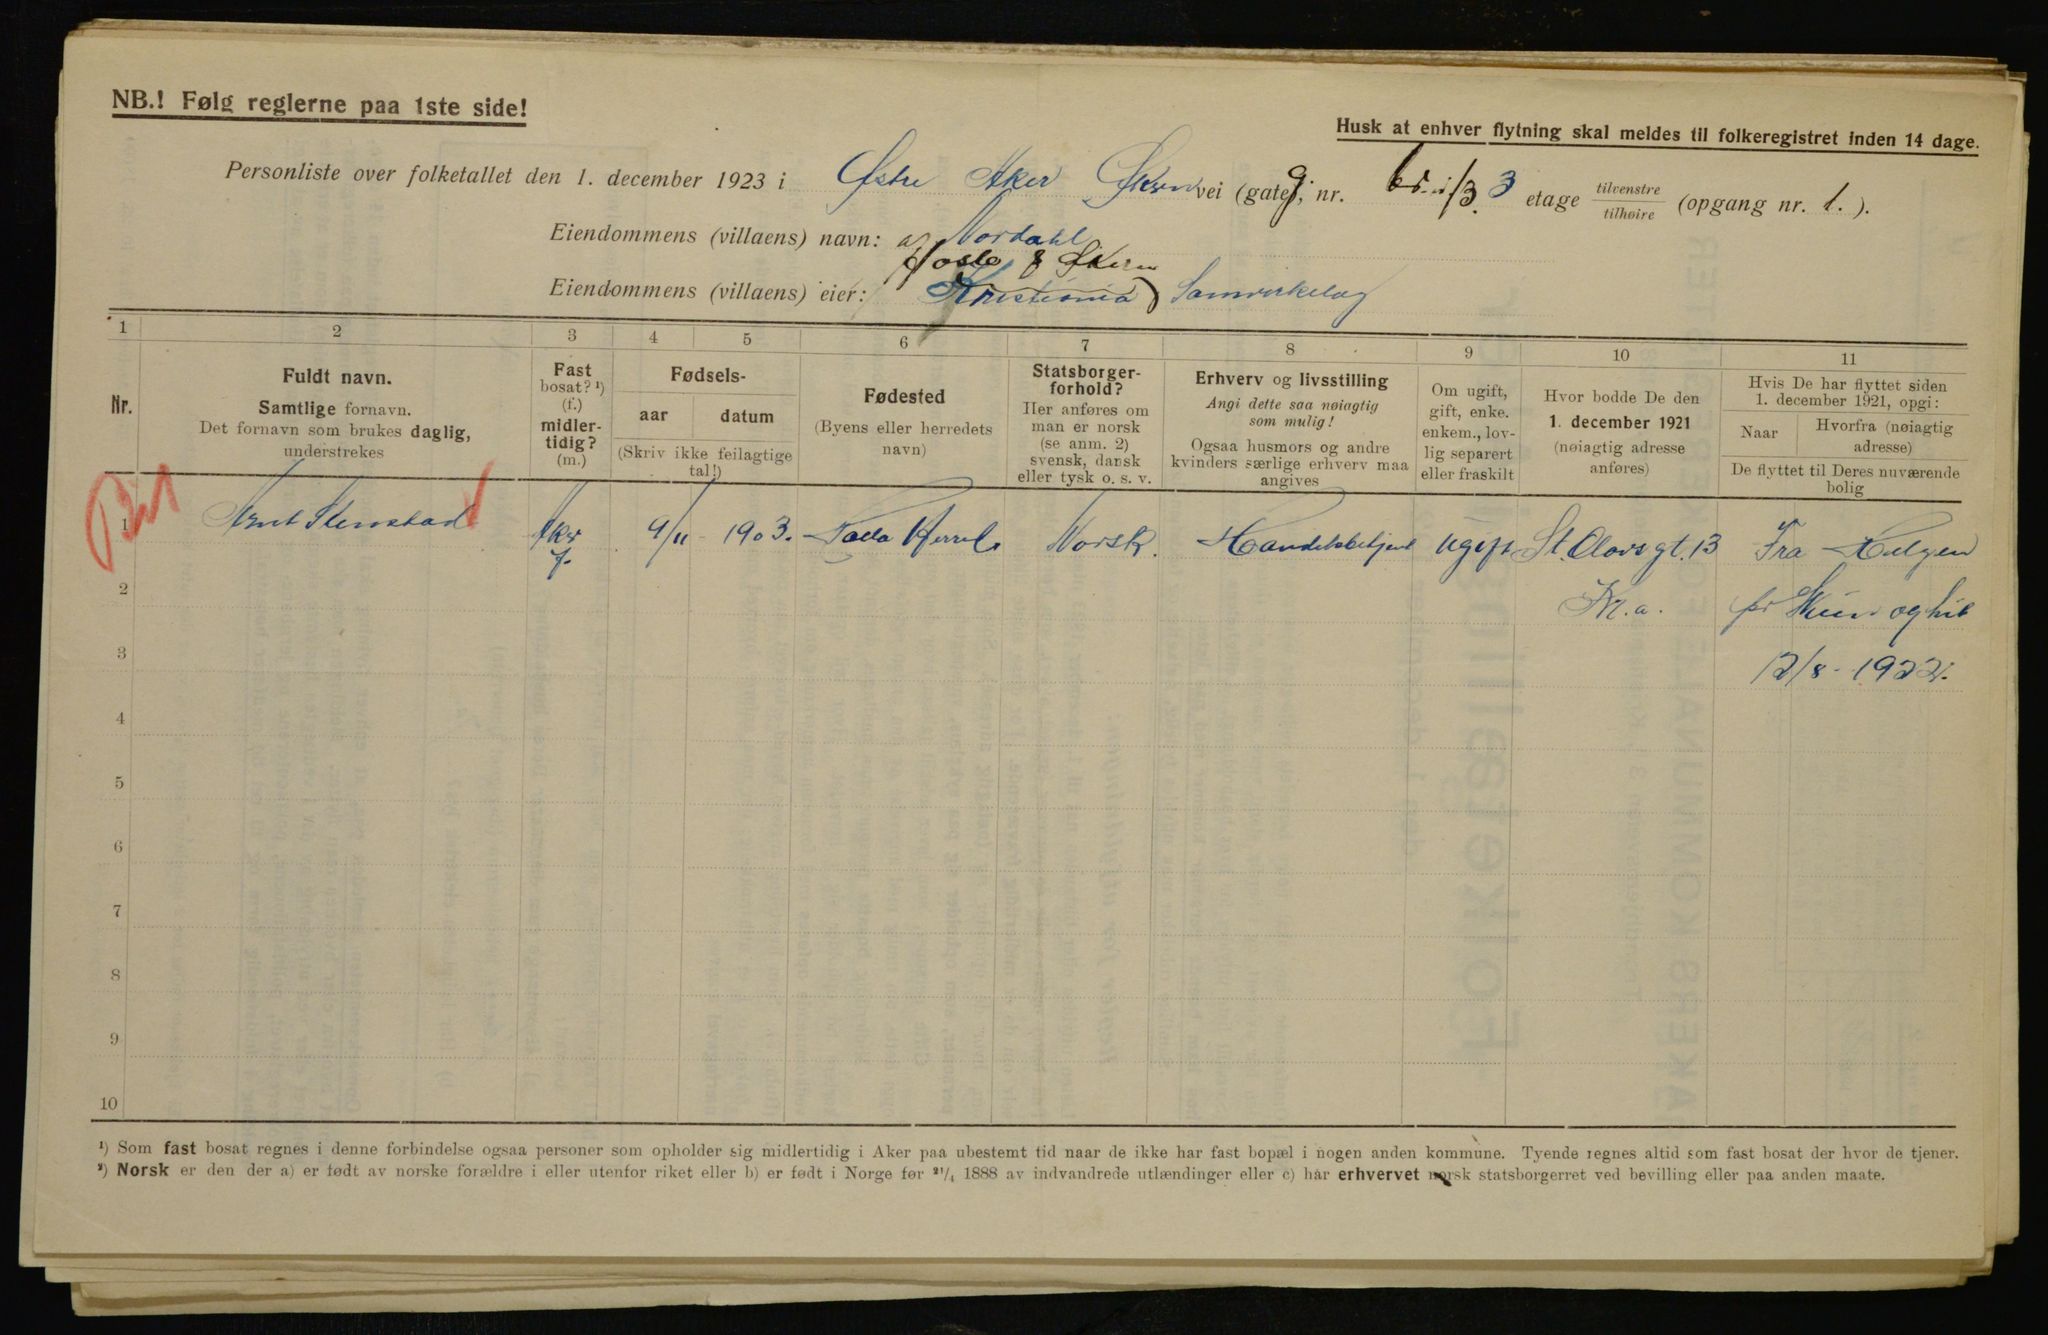 NB.! Følg reglerne paa 1ste side!
Husk at enhver flytning skal meldes til folkeregistret inden 14 dage.
Personliste over folketallet den 1. december 1923 i Østre Aker Økern vei (gate), nr. 3 etage tilvenstre tilhøire (opgang nr. 1.).
Eiendommens (villaens) navn: Nordahl
Oslo & Økern
Eiendommens (villaens) eier: Kristiania Samvirkelag
1 2 3 4 5 6 7 8 9 10 11
Nr.
Fuldt navn.
Samtlige fornavn.
Det fornavn som brukes daglig,
understrekes
Fast
bosat? ¹)
(f.)
midler-
tidig?
(m.)
Fødsels-
aar datum
(Skriv ikke feilagtige
tal!)
Fødested
(Byens eller herredets
navn)
Statsborger-
forhold?
Her anføres om
man er norsk
(se anm. 2)
svensk, dansk
eller tysk o. s. v.
Erhverv og livsstilling
Angi dette saa nøiagtig
som mulig!
Ogsaa husmors og andre
kvinders særlige erhverv maa
angives
Om ugift,
gift, enke.
enkem., lov-
lig separert
eller fraskilt
Hvor bodde De den
1. december 1921
(nøiagtig adresse
anføres)
Hvis De har flyttet siden
1. december 1921, opgi:
Naar
Hvorfra (nøiagtig
adresse)
De flyttet til Deres nuværende
bolig
1 Arnt Stenstad f. 9/11 1903. Norsk. Handelsbetjent ugift St. Olavsgt. 13 Fra
2 Kr.a. og hit
3 12/8 - 1922.
4
5
6
7
8
9
10
¹) Som fast bosat regnes i denne forbindelse ogsaa personer som opholder sig midlertidig i Aker paa ubestemt tid naar de ikke har fast bopæl i nogen anden kommune. Tyende regnes altid som fast bosat der hvor de tjener.
²) Norsk er den der a) er født av norske forældre i eller utenfor riket eller b) er født i Norge før ²¹/₄ 1888 av indvandrede utlændinger eller c) har erhvervet norsk statsborgerret ved bevilling eller paa anden maate.